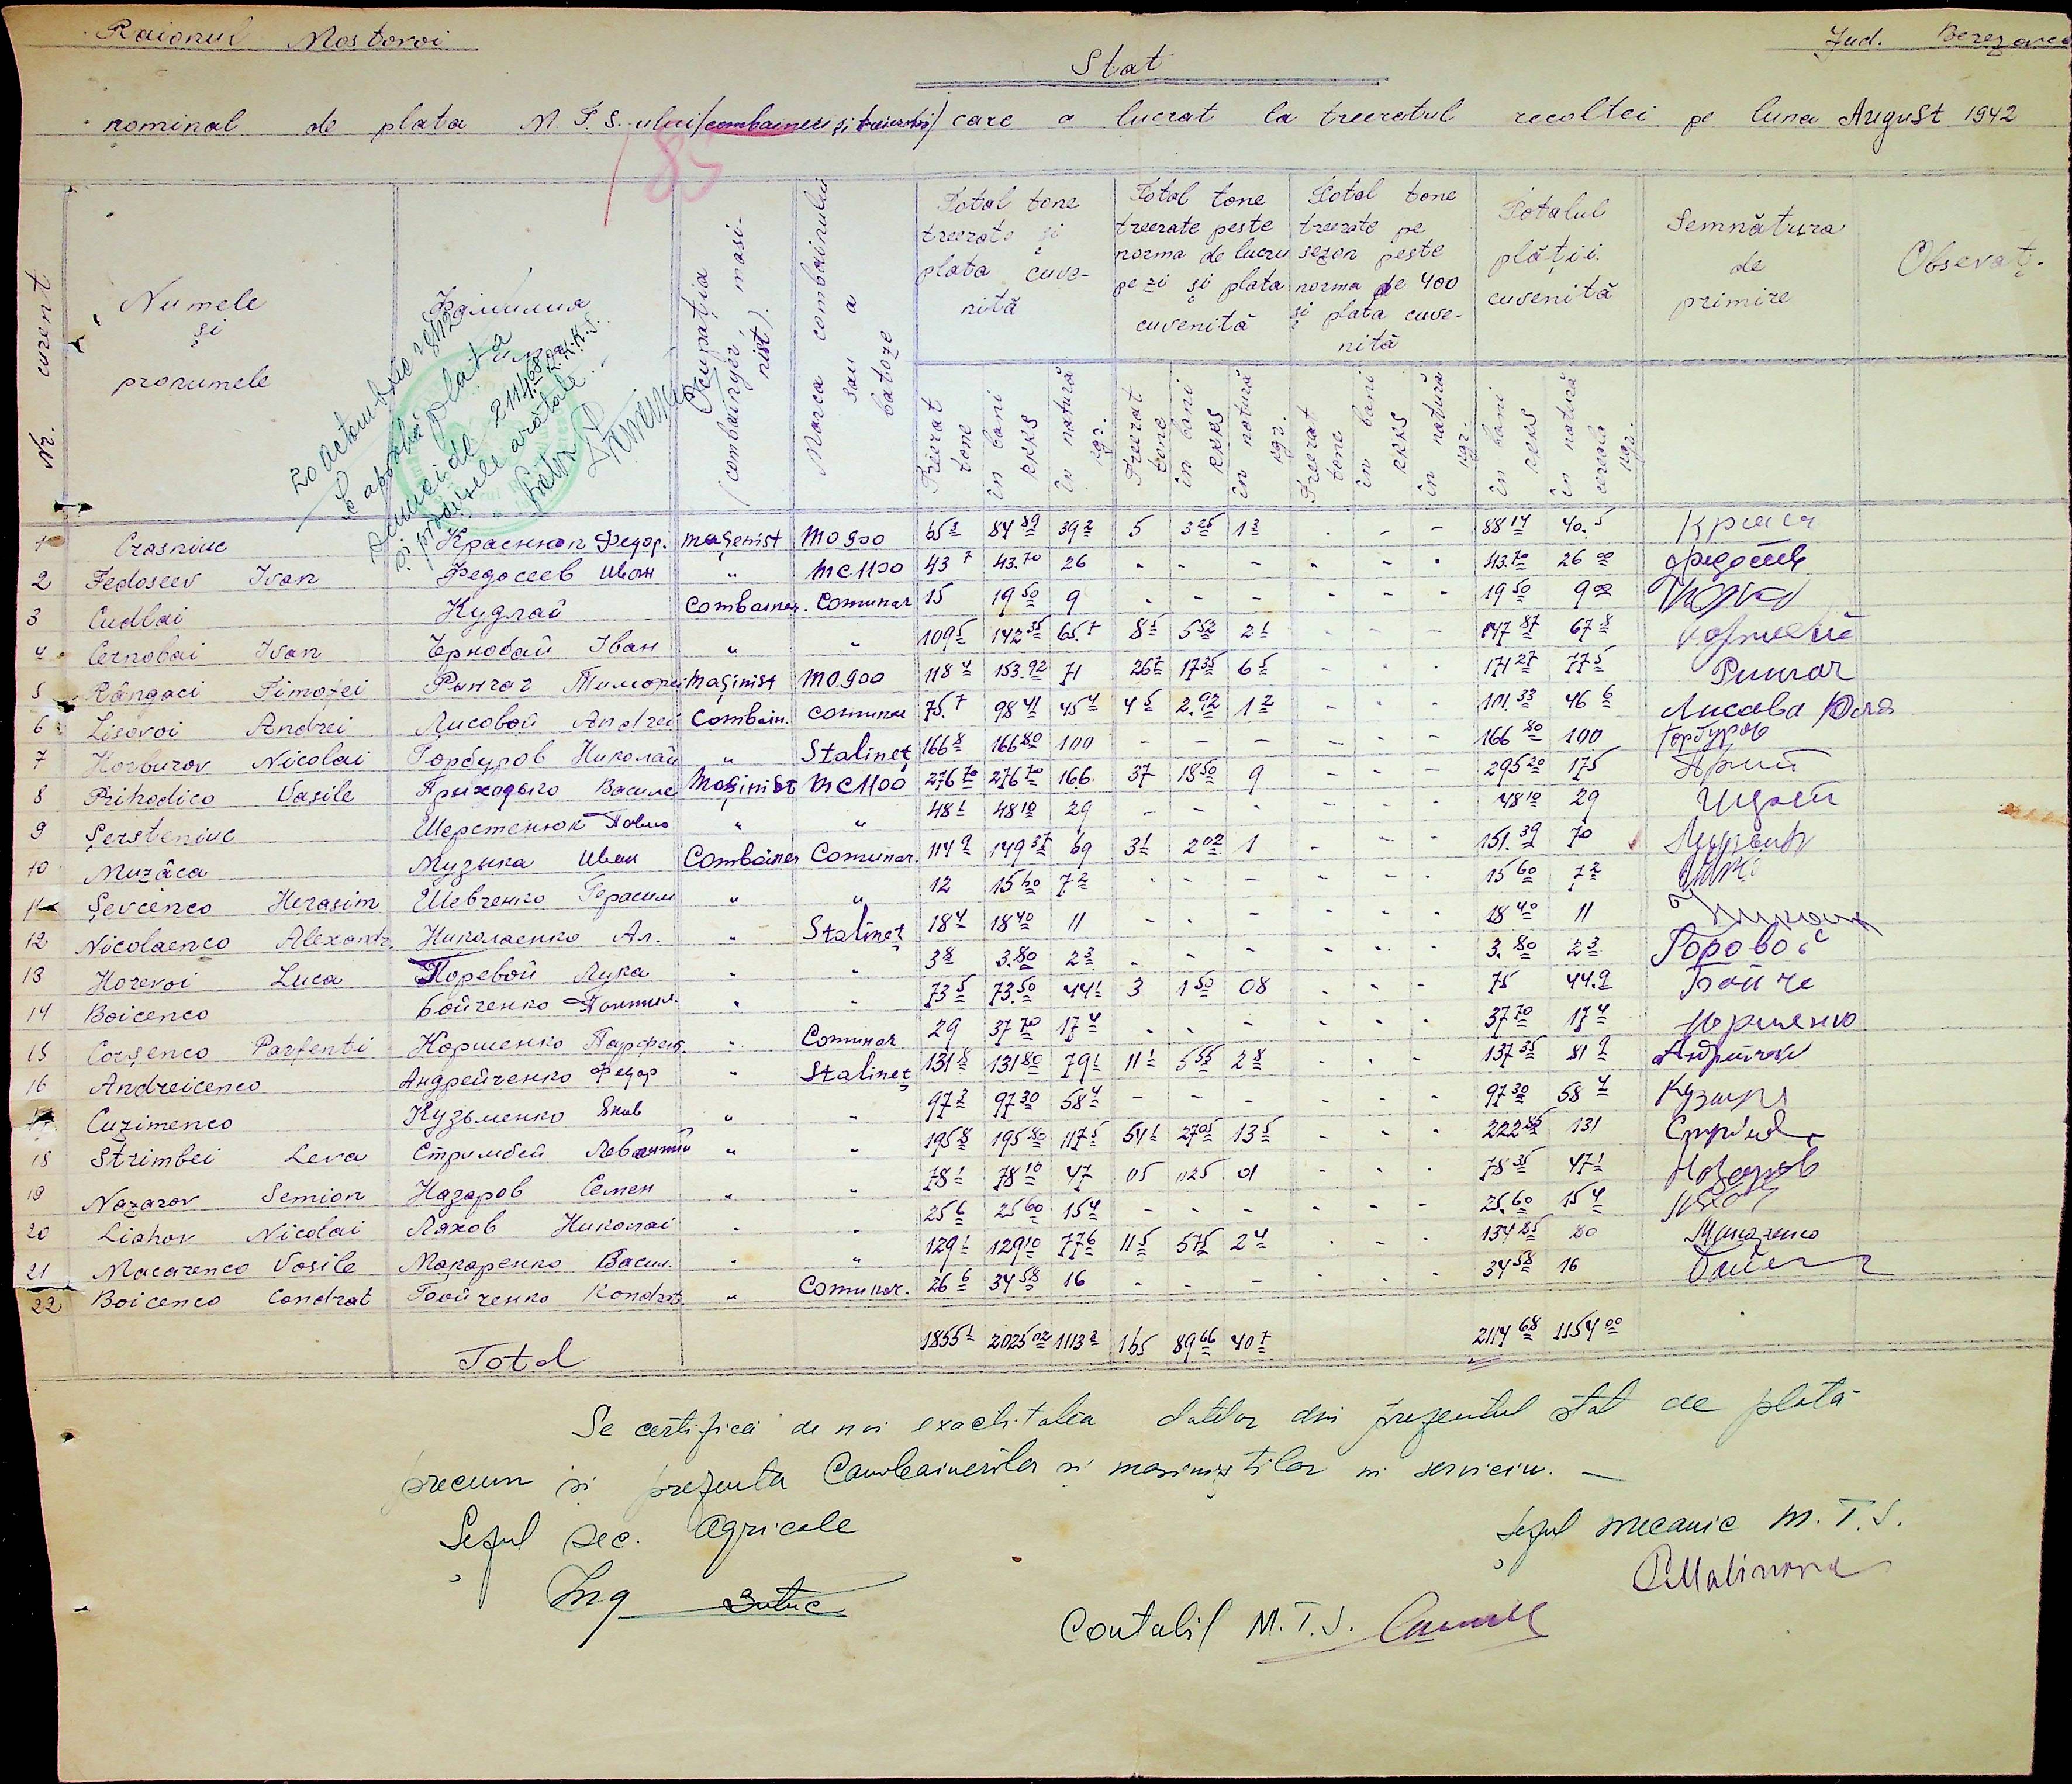 Raionul Mostovoi
Jud. Berezovca
Stat
nominal de plata M.T.S.-ului /combaineri și treerători/ care a lucrat la treeratul recoltei pe luna August 1942
185
Nr. curent
Numele și pronumele
Фамилия
Ocupația (combainyer masinist).
Marca combainului sau a batoze
Total tone treerate și plata cuvenită
Total tone treerate peste norma de lucru pe zi și plata cuvenită
Total tone treerate pe sezon peste norma de 400 și plata cuvenită
Totalul plății cuvenită
Semnătura de primire
Observaț.
Treerat tone
în bani RKKS
în natură kgr.
Treerat tone
în bani RKKS
în natură kgr.
Treerat tone
în bani RKKS
în natură kgr.
în bani RKKS
în natură cereale kgr.
20 octombrie 1942
Se aprobă plata
sumei de 2114,68 R.K.K.S.
și produsele arătate.
1 Crasniuc Краснюк Федор. mașenist MO 900 65 3 84 89 39 2 5 3 25 1 3 . - - 88 14 40.5
2 Fedoseev Ivan Федосеев Иван " MC 1100 43 7 43.70 26 - - - - - - 43.70 26 00
3 Cudlai Кудлай Combainer. Comunar 15 19 50 9 - - - - - - 19 50 9 00
4 Cernobai Ivan Чернобай Іван " " 109 5 142 35 65.7 8 5 5 52 2 1 - - - 147 87 67 8
5 Rângaci Timofei Рингач Тимофей Mașinist MO 900 118 4 153.92 71 26 7 17 35 6 5 - - - 171 27 77 5 Рингач
6 Lisovoi Andrei Лисовой Andrei Combain. Comunar 75.7 98 41 45 4 4 5 2.92 1 2 - - - 101.33 46 6 Лисова
7 Horburov Nicolai Горбуров Николай " Stalineț 166 8 166 80 100 - - - - - - 166 80 100 Горбуров
8 Prihodico Vasile Приходько Василе Mașinist MC 1100 276 70 276 70 166 37 18 50 9 - - - 295 20 175
9 Șersteniuc Шерстенюк Павло " " 48 1 48 10 29 - - - - - - 48 10 29
10 Muzâca Музыка Иван Combainer Comunar. 114 9 149 37 69 3 1 2 02 1 - - - 151.39 70
11 Șevcenco Herasim Шевченко Герасим " " 12 15 60 7 2 - - - - - - 15 60 7 2
12 Nicolaenco Alexantr. Николаенко Ал. " Stalineț 18 4 18 40 11 - - - - - - 18 40 11
13 Horevoi Luca Горевой Лука " " 3 8 3.80 2 3 - - - - - - 3.80 2 3 Горовой
14 Boicenco Бойченко " " 73 5 73.50 44 1 3 1 50 08 - - - 75 44.9 Бойче
15 Corșenco Parfenti Коршенко Парфен. " Comunar 29 37 70 17 4 - - - - - - 37 70 17 4
16 Andreicenco Андрейченко Федор " Stalineț 131 8 131 80 79 1 11 1 5 55 2 8 - - - 137 35 81 9
17 Cuzimenco Кузьменко Яков " " 97 3 97 30 58 4 - - - - - - 97 30 58 4
18 Strimbei Leva Стримбей Левантий " " 195 8 195 80 117 5 54 1 27 05 13 5 - - - 222 85 131
19 Nazarov Semion Назаров Семен " " 78 1 78 10 47 05 025 01 - - - 78 35 47 1 Назаров
20 Liahov Nicolai Ляхов Николаі " " 25 6 25 60 15 4 - - - - - - 25.60 15 4
21 Macarenco Vasile Макаренко Васил. " " 129 1 129 10 77 6 11 5 5 75 2 4 - - - 134 85 80
22 Boicenco Condrat Бойченко Kondrat. " Comunar. 26 6 34 58 16 - - - - - - 34 58 16
Total 1855 1 2025 02 1113 2 165 89 66 40 7 2114 68 1154 00
Se certifică de noi exactitatea datelor din prezentul stat de plată
precum și prezența Combainerilor și mașiniștilor în serviciu. —
Șeful sec. Agricole
Ing
Șeful mecanic M.T.S.
Contabil M.T.S.